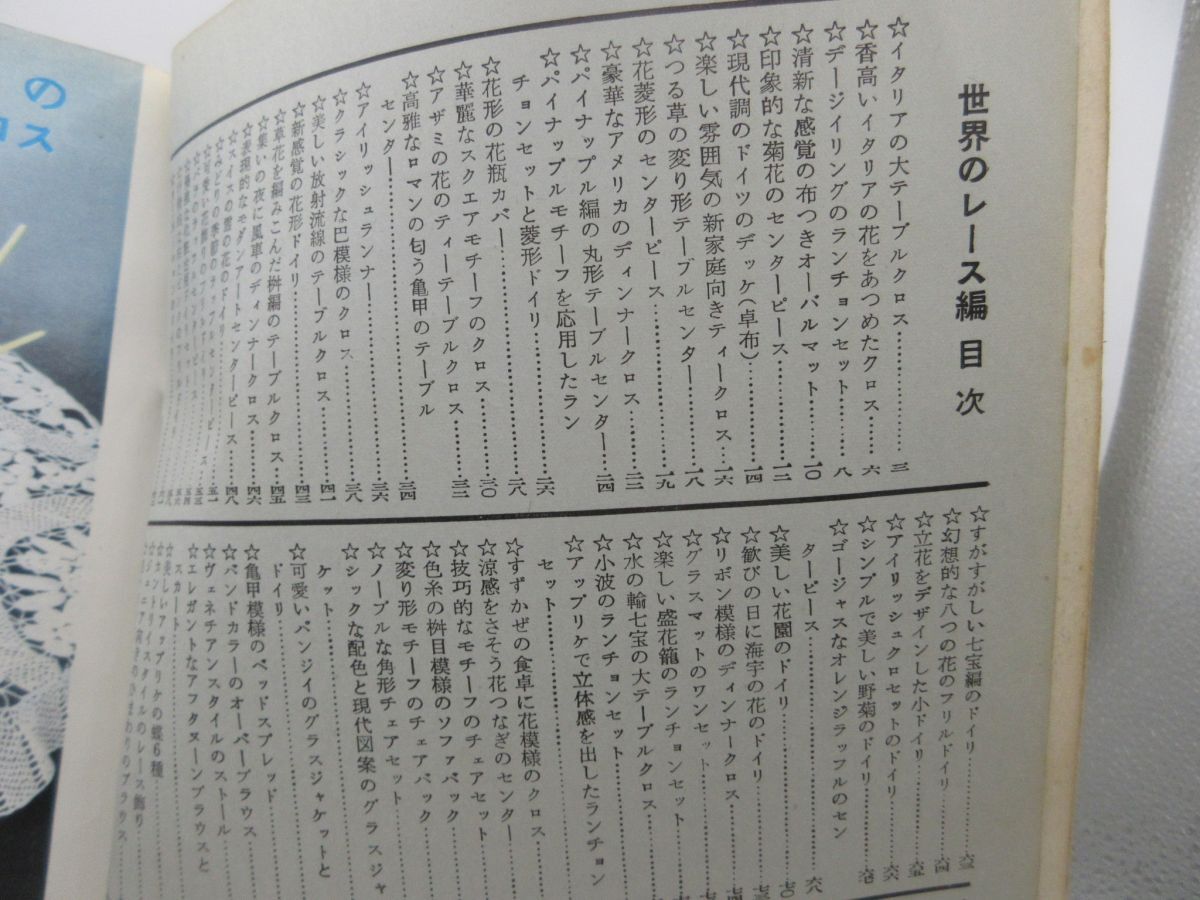 世界のレース編 目次
☆イタリアの大テーブルクロス……………三
☆香高いイタリアの花をあつめたクロス……六
☆デージイリングのランチョンセット……八
☆清新な感覚の布つきオーバルマット……一〇
☆印象的な菊花のセンターピース……一二
☆現代調のドイツのデッケ(卓布)……一四
☆楽しい雰囲気の新家庭向きティークロス…一六
☆つる草の変り形テーブルセンター……一八
☆花菱形のセンターピース……一九
☆豪華なアメリカのディンナークロス……二二
☆パイナップル編の丸形テーブルセンター…二四
☆パイナップルモチーフを応用したラン
チョンセットと菱形ドイリ……二六
☆花形の花瓶カバー……二八
☆華麗なスクエアモチーフのクロス……三〇
☆アザミの花のティーテーブルクロス……三二
☆高雅なロマンの匂う亀甲のテーブル
センター……三四
☆アイリッシュランナー……三六
☆クラシックな巴模様のクロス……三八
☆美しい放射流線のテーブルクロス……四一
☆新感覚の花形ドイリ……四三
☆草花を編みこんだ桝編のテーブルクロス…四五
☆集いの夜に風車のディンナークロス……四六
☆表現的なモダンアートセンターピース……四八
☆スイスの雪の花のドイリ
☆みどりの季節のラッフルセンターピース……五一
☆すがすがしい七宝編のドイリ……六三
☆幻想的な八つの花のフリルドイリ……六四
☆立花をデザインした小ドイリ……六五
☆アイリッシュクロセットのドイリ……六六
☆シンプルで美しい野菊のドイリ……六七
☆ゴージャスなオレンジラッフルのセン
ターピース……六八
☆美しい花園のドイリ……七〇
☆歓びの日に海宇の花のドイリ……
☆リボン模様のディンナークロス……
☆グラスマットのワンセット……
☆楽しい盛花籠のランチョンセット
☆水の輪七宝の大テーブルクロス……
☆小波のランチョンセット……
☆アップリケで立体感を出したランチョン
セット……
☆すずかぜの食卓に花模様のクロス……
☆涼感をさそう花つなぎのセンター……
☆技巧的なモチーフのチェアセット
☆色糸の桝目模様のソファバック……
☆変り形モチーフのチェアバック……
☆ノーブルな角形チェアセット……
☆シックな配色と現代図案のグラスジャ
ケット……
☆可愛いパンジイのグラスジャケットと
ドイリ……
☆亀甲模様のベッドスプレッド……
☆ベンドカラーのオーバーブラウス……
☆ヴェネチアンスタイルのストール……
☆エレガントなアフタヌーンブラウスと
スカート……
☆美しいアップリケの蝶6種
☆カントリイスタイルのレース飾り
の
ロス